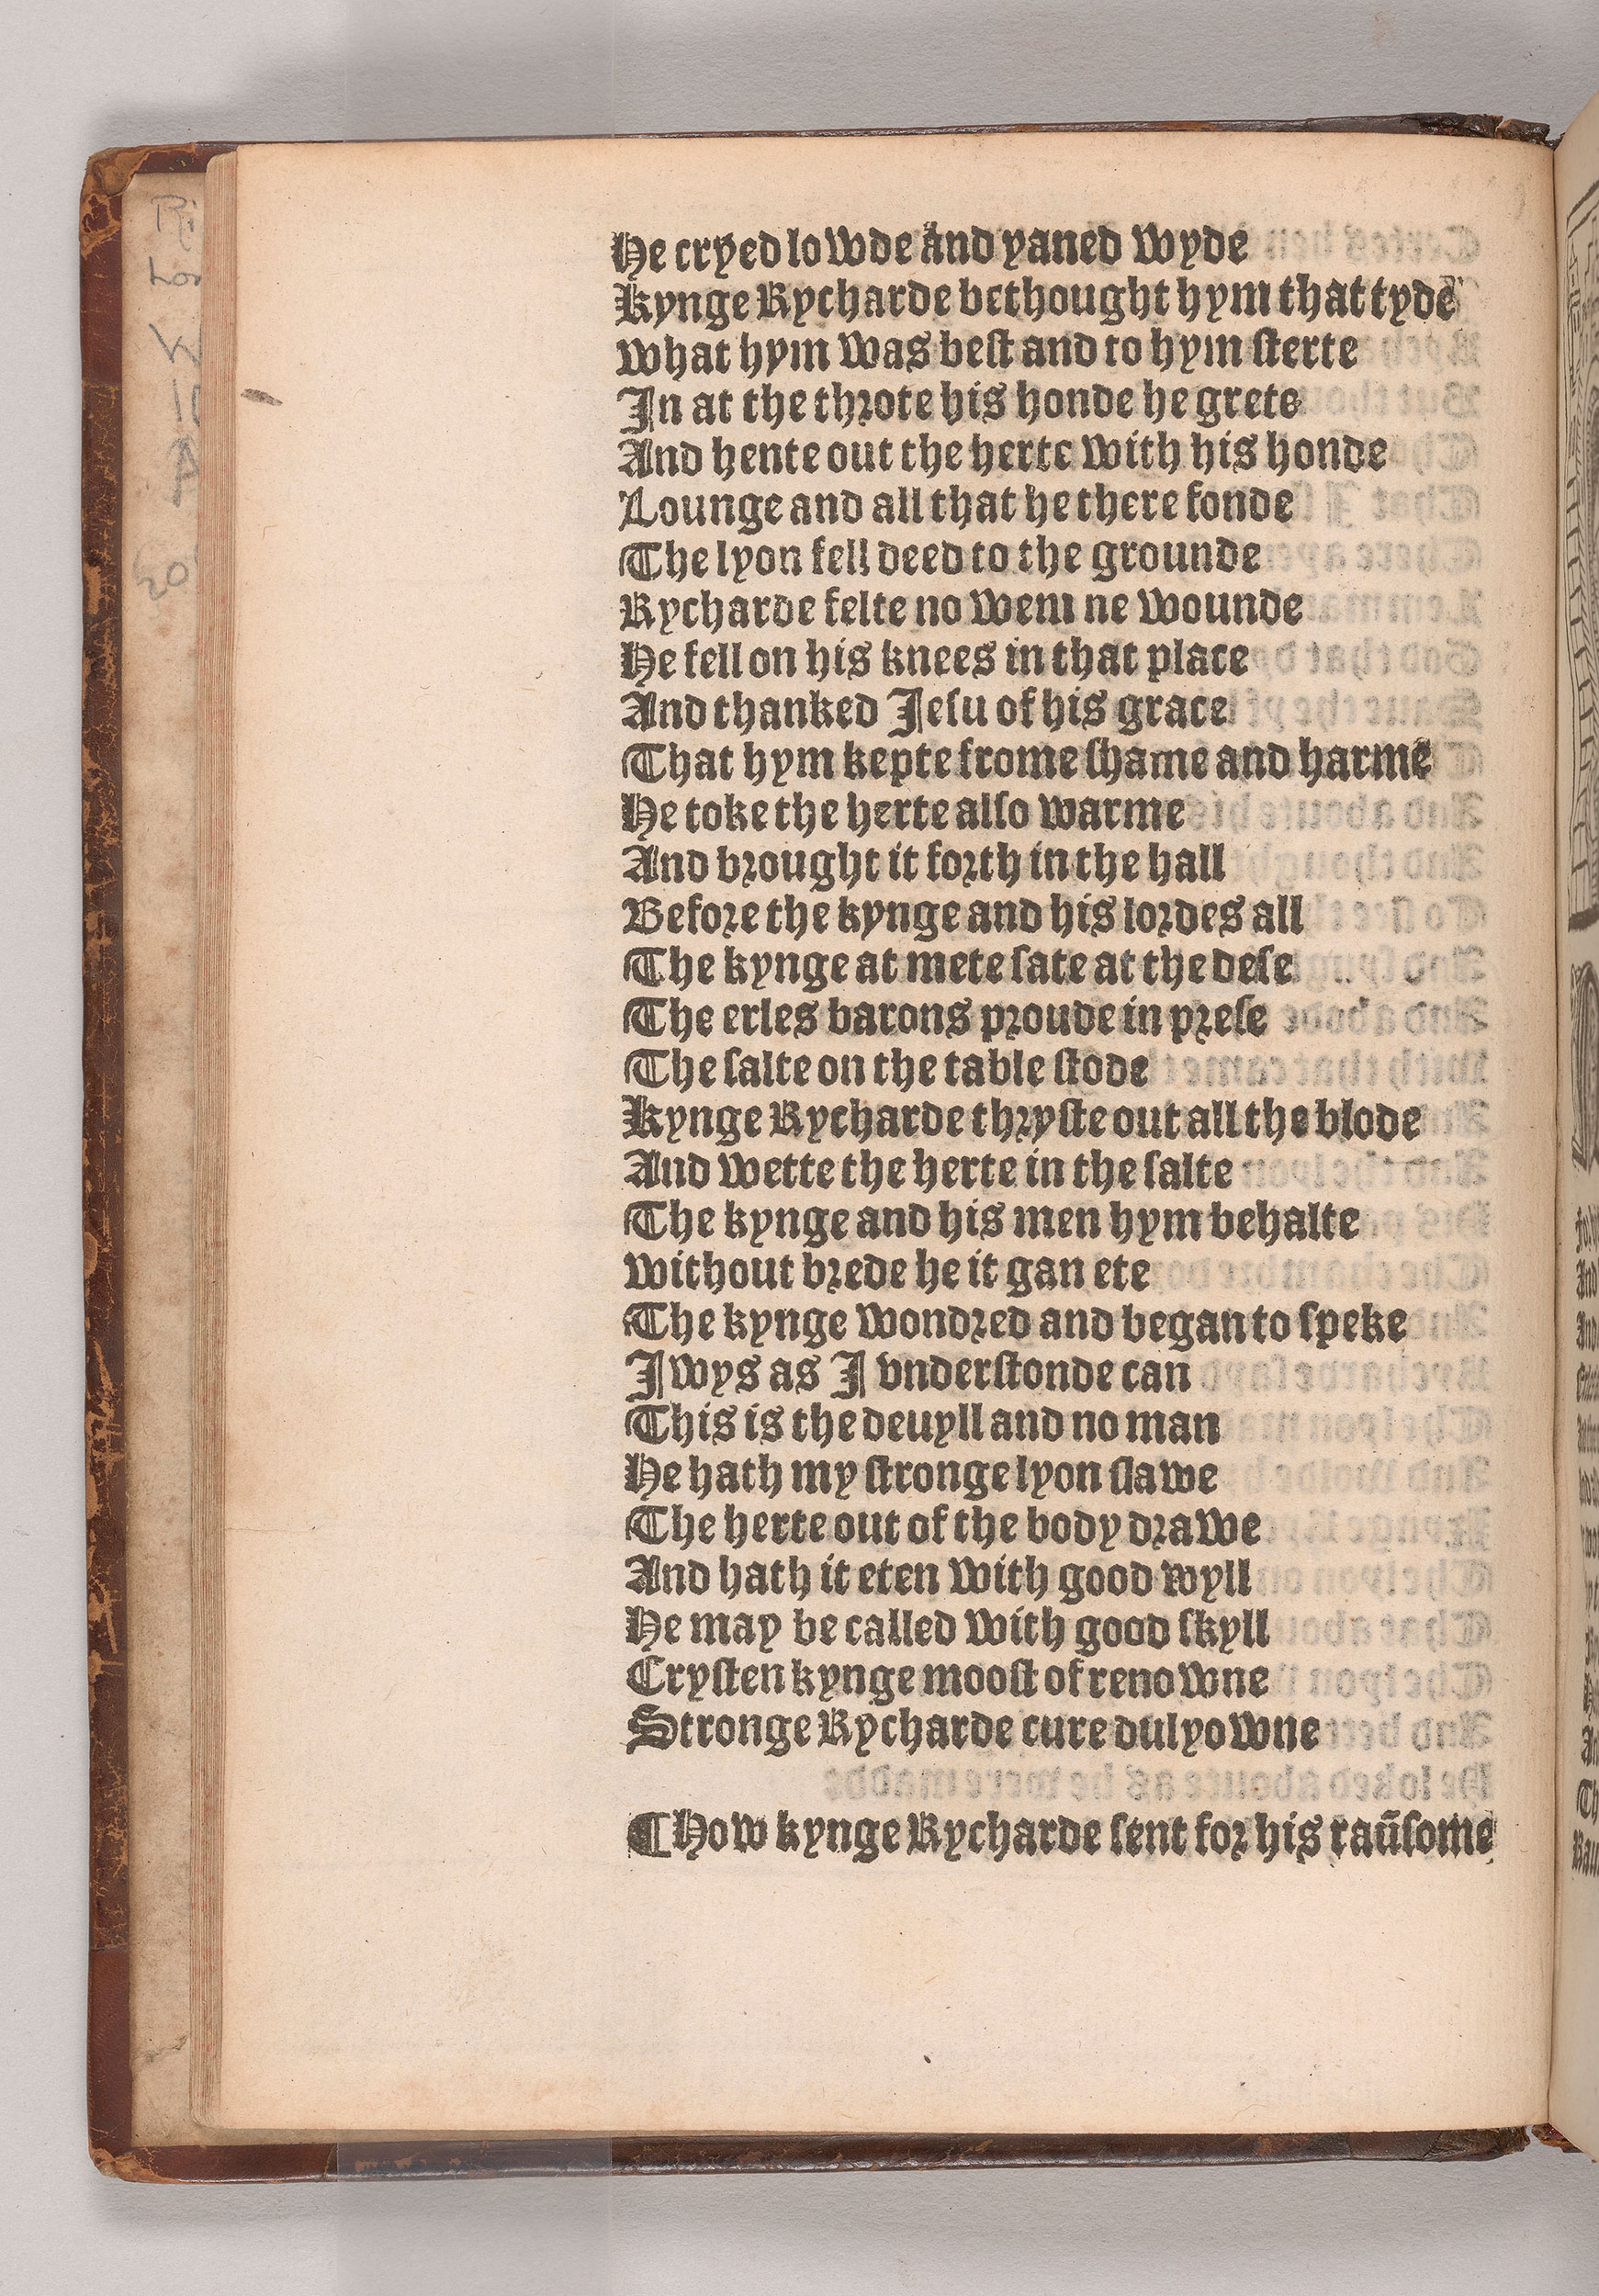 He cryed lowde and yaned wyde
Kynge Rycharde bethought hym that tyde
What hym was best and to hym sterte
In at the throte his honde he grete
And hente out the herte with his honde
Lounge and all that he there fonde
The lyon fell deed to the grounde
Rycharde felte no wem ne wounde
He fell on his knees in that place
And thanked Jesu of his grace
That hym kepte frome shame and harme
He toke the herte also warme
And brought it forth in the hall
Before the kynge and his lordes all
The kynge at mete sate at the dese
The erles barons proude in prese
The salte on the table stode
Kynge Rycharde thryste out all the blode
And wette the herte in the salte
The kynge and his men hym behalte
Without brede he it gan ete
The kynge wondred and began to speke
Iwys as I vnderstonde can
This is the deuyll and no man
He hath my stronge lyon slawe
The herte out of the body drawe
And hath it eten with good wyll
He may be called with good skyll
Crysten kynge moost of renowne
Stronge Rycharde cure dulyowne
¶How kynge Rycharde sent for his raūsome